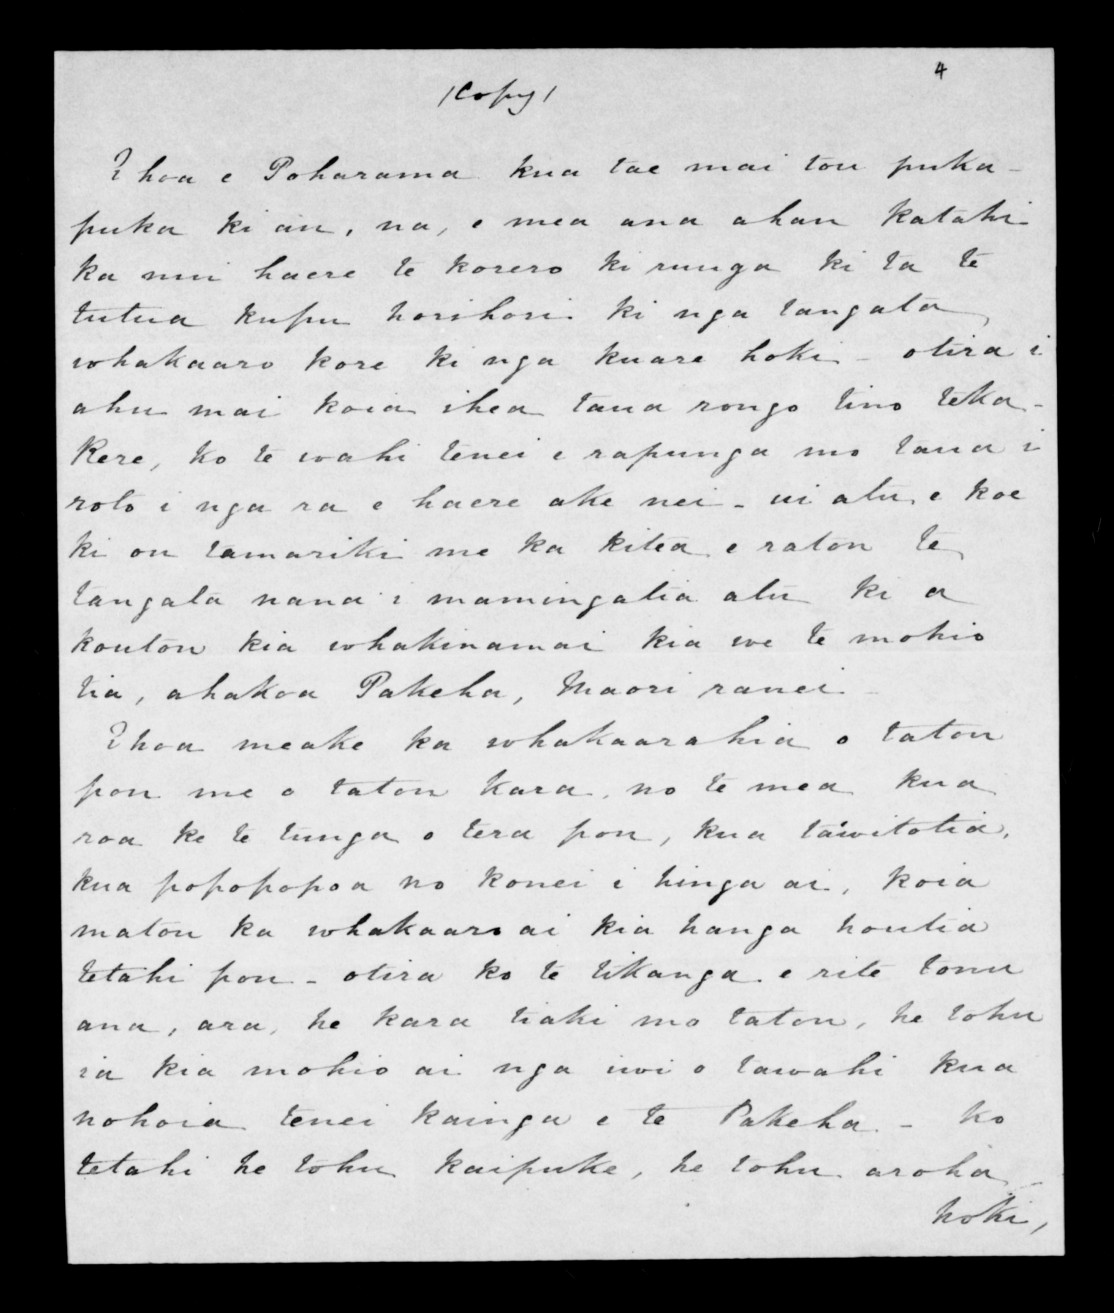 4
/Copy/
E hoa e Poharama kua tae mai tou puka-
puka ki au, na, e mea ana ahau katahi
ka nui haere te korero ki runga ki ta te
tutua kupu horihori ki nga tangata
whakaaro kore ki nga kuare hoki - otira i
ahu mai koia ihea taua rongo tino teka-
Kere, ko te wahi tenei e rapunga mo taua i
roto i nga ra e haere ake nei - ui atu e koe
ki ou tamariki me ka kitea e ratou te
tangata nana i mamingatia atu ki a
koutou kia whakinamai kia we te mohio
tia, ahakoa Pakeha, Maori ranei -
Ehoa meake ka whakaarahia o tatou
pou me o tatou kara, no te mea kua
roa ke te tunga o tera pou, kua tawitotia,
kua popopopoa no konei i hinga ai, koia
matou ka whakaaro ai kia hanga houtia
tetahi pou - otira ko te tikanga e rite tonu
ana, ara, he kara tiaki mo tatou, he tohu
ia kia mohio ai nga iwi o tawahi kua
nohoia tenei kainga e te Pakeha - ko
tetahi he tohu kaipuke, he tohu aroha
hoki,